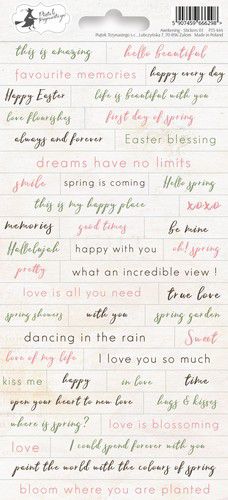 P13
Piątek Trzynastego
5907459666298
Awakening - Stickers 01 P13-444
Piątek Trzynastego s.c.
Made in Poland
this is amazing hello beautiful
favourite memories happy every day
Happy Easter life is beautiful - enjoy it
love flourishes first day of spring
always and forever Easter blessing
dreams have no limits
smile spring is coming Hello spring
this is my happy place xoxo
memories good times be mine
Hallelujah happy with you oh! spring
pretty what an incredible view !
love is all you need true love
spring showers with you spring garden
dancing in the rain Sweet
love of my life I love you so much
kiss me happy in love time
open your heart to new love hugs & kisses
where is spring? love is blossoming
love I could spend forever with you
paint the world with the colours of spring
bloom where you are planted